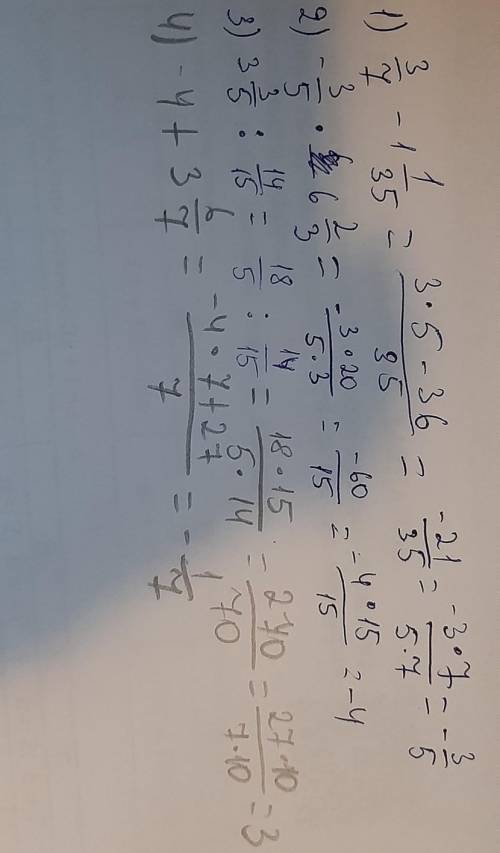 1) 3/7 - 1 1/35 = (3·5-36)/35 = -21/35 = -3·7/5·7 = -3/5
2) -3/5 · 6 2/3 = -3·20/5·3 = -60/15 = -4·15/15 = -4
3) 3 3/5 : 14/15 = 18/5 : 14/15 = 18·15/5·14 = 270/70 = 27·10/7·10 = 3
4) -4 + 3 6/7 = (-4·7+27)/7 = -1/7